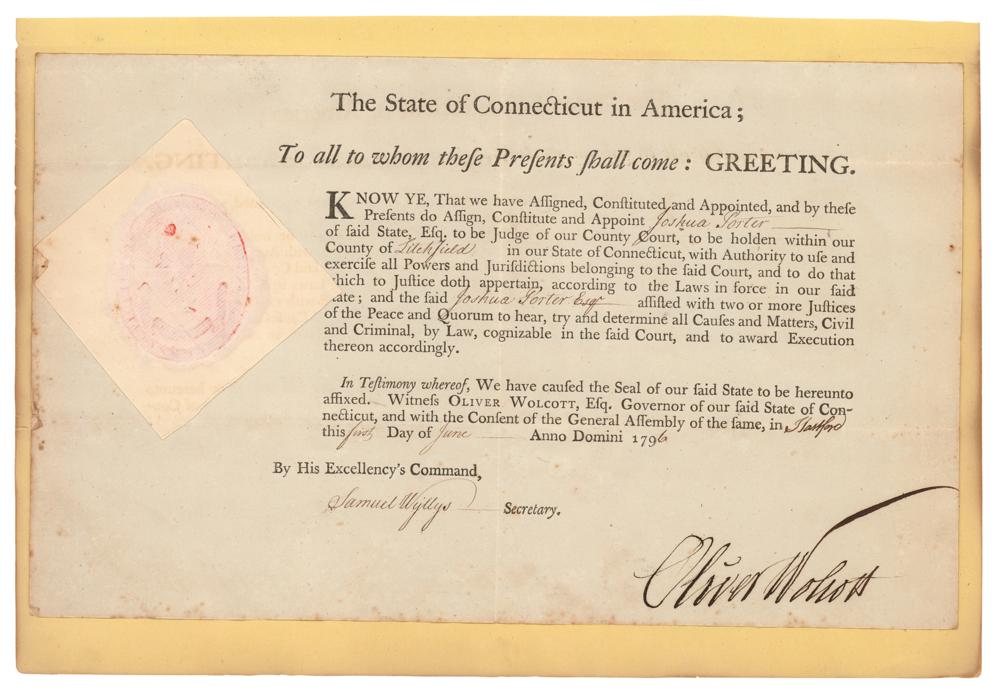 The State of Connecticut in America;
To all to whom theſe Preſents ſhall come: GREETING.
KNOW YE, That we have Aſſigned, Conſtituted and Appointed, and by theſe
Preſents do Aſſign, Conſtitute and Appoint Joshua Porter
of ſaid State, Eſq. to be Judge of our County Court, to be holden within our
County of Litchfield in our State of Connecticut, with Authority to uſe and
exerciſe all Powers and Juriſdictions belonging to the ſaid Court, and to do that
which to Juſtice doth appertain, according to the Laws in force in our ſaid
State; and the ſaid Joshua Porter Esqr aſſiſted with two or more Juſtices
of the Peace and Quorum to hear, try and determine all Cauſes and Matters, Civil
and Criminal, by Law, cognizable in the ſaid Court, and to award Execution
thereon accordingly.
In Teſtimony whereof, We have cauſed the Seal of our ſaid State to be hereunto
affixed. Witneſs OLIVER WOLCOTT, Eſq. Governor of our ſaid State of Con-
necticut, and with the Conſent of the General Aſſembly of the ſame, in Hartford
this first Day of June Anno Domini 1796
By His Excellency's Command,
Samuel Wyllys Secretary.
Oliver Wolcott